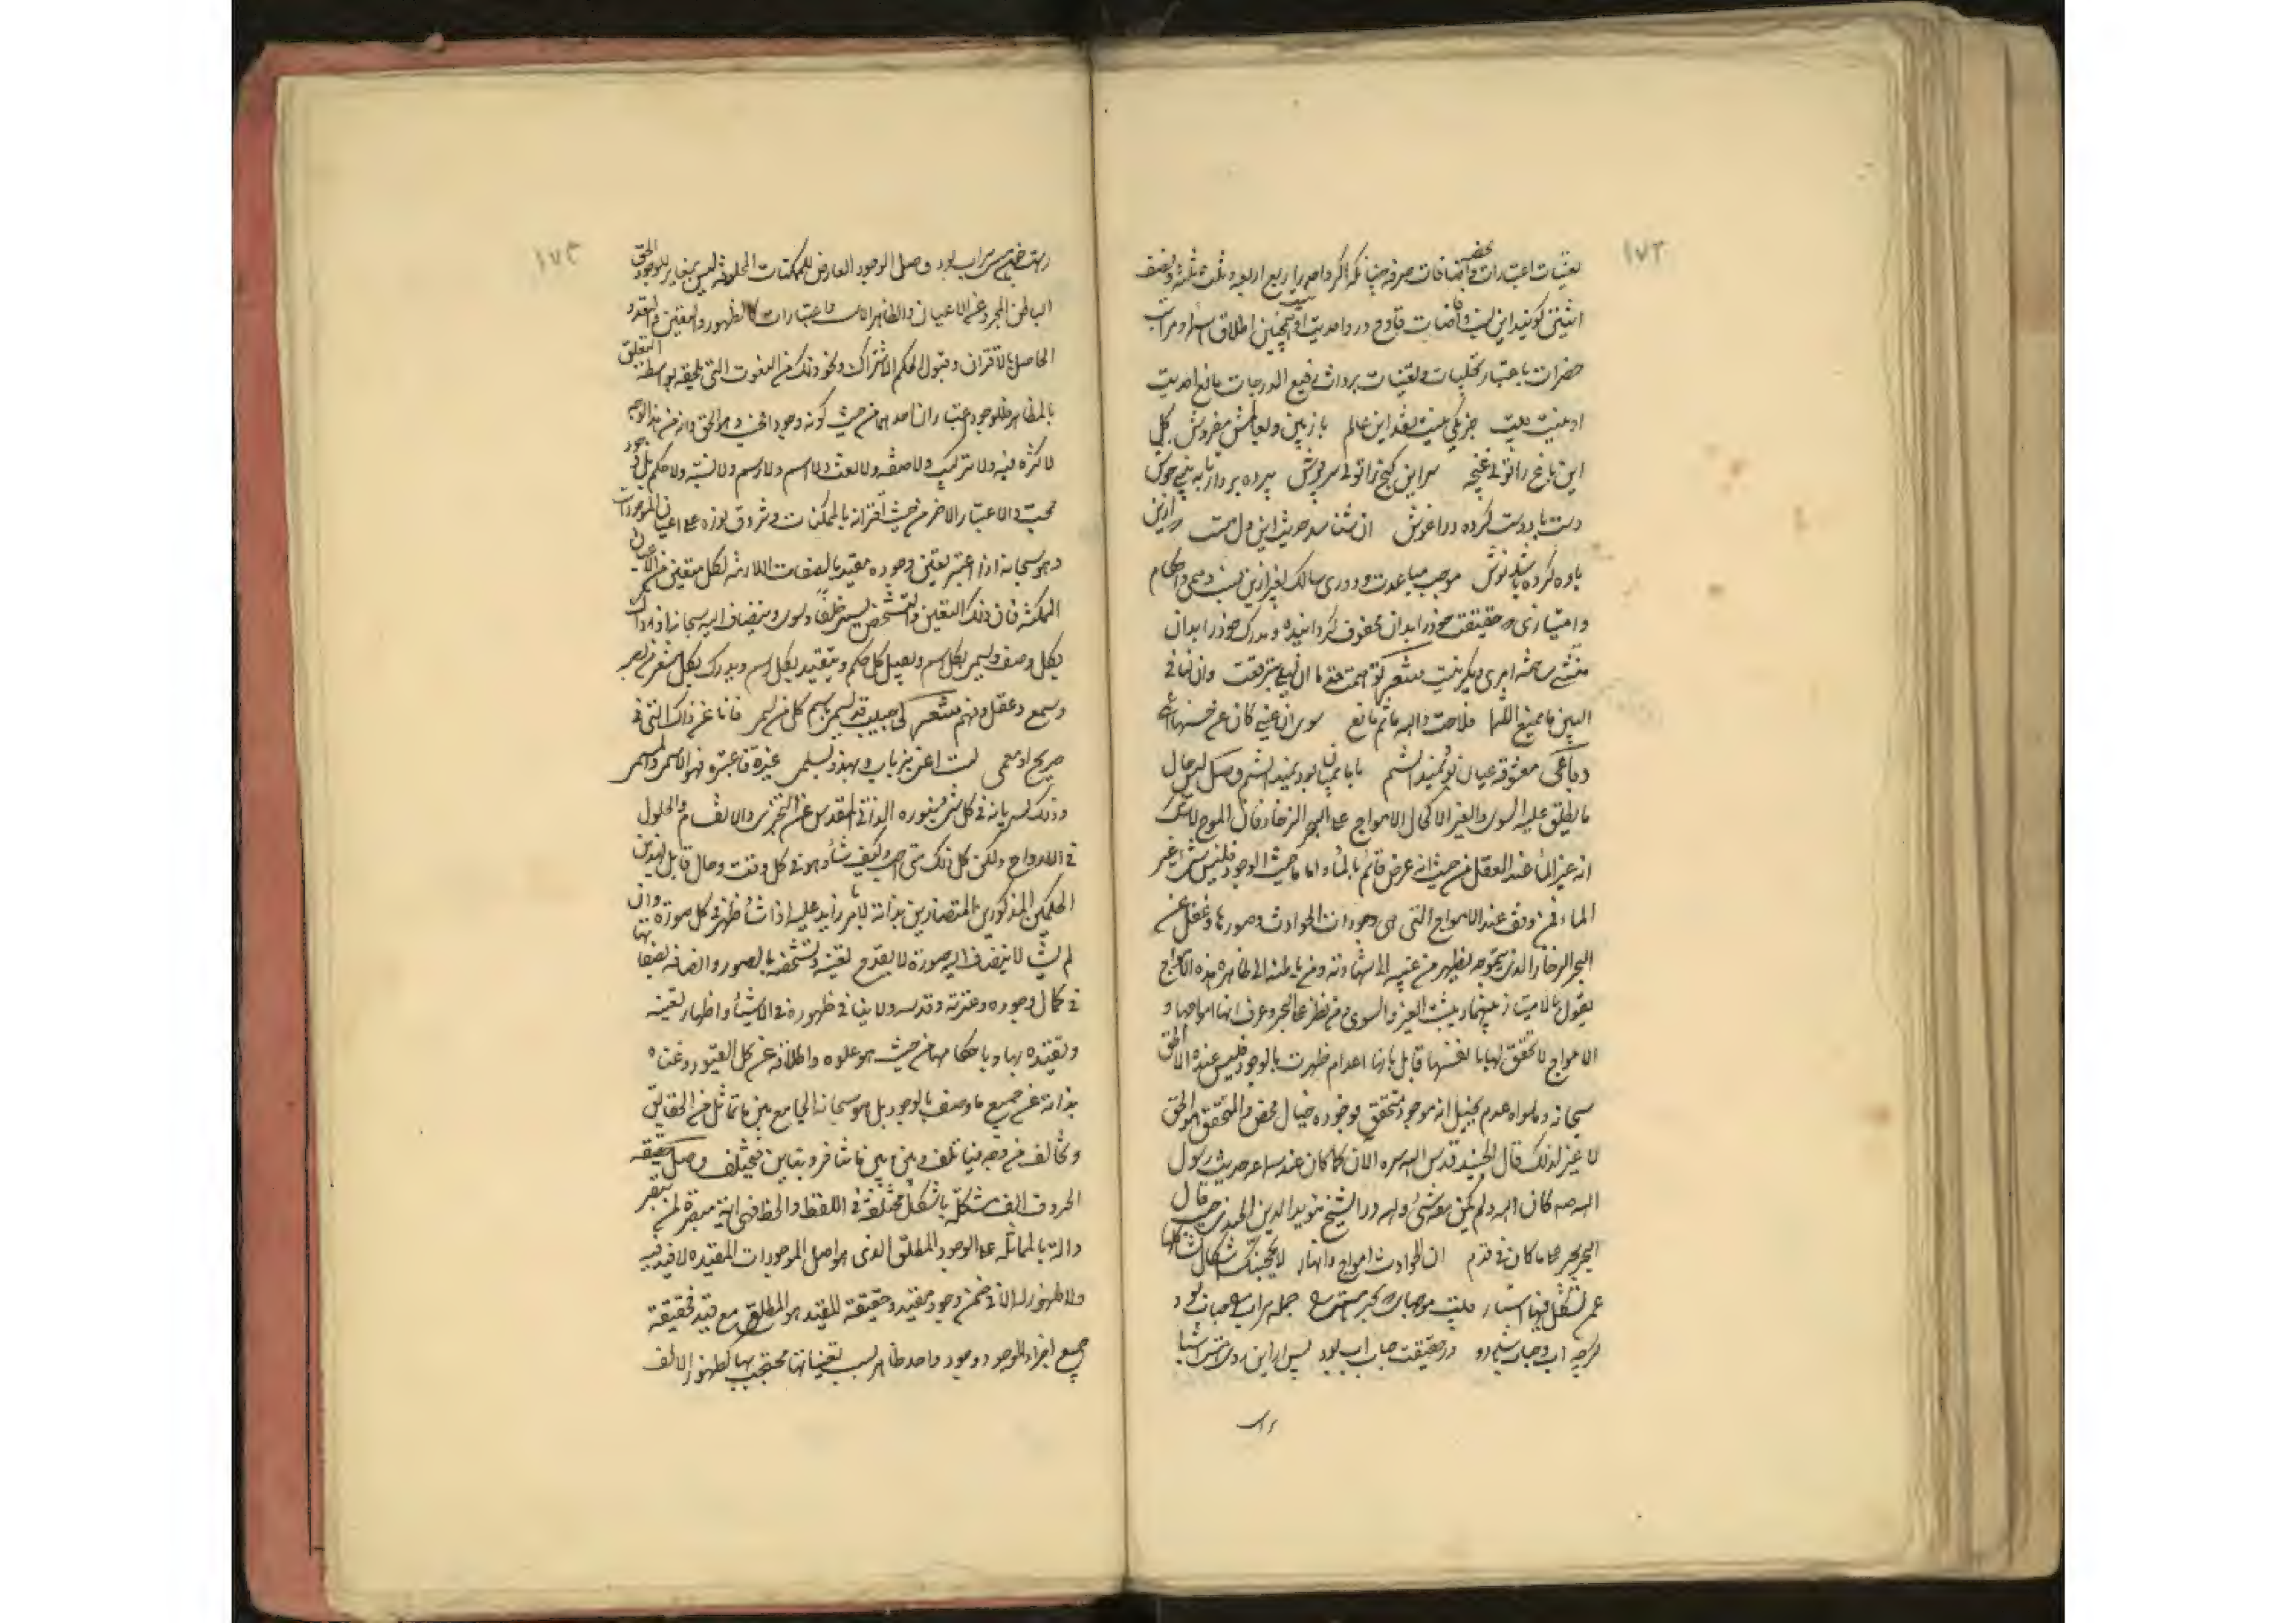 ١٧٢
تعینات اعتبارات محض و اضافات صرفه چنانکه اگر واحد را ربع اربعه و ثلث ثلثه و نصف
اثنین کویند این نسب و اضافات قادح در واحدیت او نیست همچنین اطلاق اسما و مراتب
حضرات باعتبار تجلیات و تعینات بر ذات رفیع الدرجات مانع احدیت
او نیست بیت جز یکی نیست نقد این عالم باز بین و بعالمش مفروش کل
این باغ را توئی غنچه سر این کنج را توئی سرپوش پرده بردار تا به بینی خوش
دست با دوست کرده در اغوش ان شناسد حدیث این دل مست که ازین
باده کرده باشد نوش موجب مباعدت و دوری سالک بغیر ازین نیست و هی احکام
و امتیازی که حقیقت خود را بدان محفوف کردانیده و مدرک خود را بدان
البین ما صنع اللثما فلاحت والله ماثم مانع سوی ان عینی کان عن حسنها
رباعی معشوقه عیان بود نمیدانستم با ما بمیان بود نمیدانستم وصل لیس حال
ما یطلق علیه السوی والغیر الا کحال الامواج علی البحر الزخار فان الموج لا شک
انه غیر الماء عند العقل من حیث انه عرض قائم بالماء و اما من حیث الوجود فلیس شئ غیر
الماء فمن وقف عند الامواج التی هی وجودات الحوادث و صورها و غفل عن
البحر الزخار الذی بتموجه یظهر من غیبه الی شهادته و من باطنه الی ظاهره هذه الامواج
یقول بالامتیاز بینهما و یثبت الغیر والسوی و من نظر علی البحر و عرف انها امواجها و
الامواج لا تحقق لها بانفسها قایل بانها اعدام ظهرت بالوجود فلیس عنده الا الحق
سبحانه و ما سواه عدم یخیل انه موجود متحقق فوجوده خیال محض والمتحقق هو الحق
لا غیر لذلک قال الجنید قدس الله سره الآن کما کان عند سماعه حدیث رسول
الله صه کان الله و لم یکن معه شئ و لله در الشیخ مؤید الدین الجندی حیث قال
البحر بحر علی ما کان فی قدم ان الحوادث امواج و انهار لا یحجبنک اشکال تشاکلها
عمن تشکل فیها استار
کرچه اب و حباب باشد دو در حقیقت حباب اب بود پس ازین روی هستی اشیا
راست
١٧٣
راست هستی سراب بود وصل الوجود العارض للممکنات المخلوقة لیس بمغایر للوجود الحق
الباطن المجرد عن الاعیان والمظاهر الا بنسب و اعتبارات کالظهور والتعین والتعدد
الحاصل بالاقتران و قبول الحکم الاشتراک و نحو ذلک من النعوت التی تلحقه بواسطة التعلق
بالمظاهر فللوجود اعتباران احدهما من حیث کونه وجودا فحسب و هو الحق و انه من هذا الوجه
لا کثرة فیه ولا ترکیب ولا صفة ولا نعت ولا اسم ولا رسم ولا نسبة ولا حکم بل وجود
بحت والاعتبار الاخر من حیث اقترانه بالممکنات و شروق نوره علی اعیان الموجودات
و هو سبحانه اذا اعتبر تعین وجوده مقیدا بالصفات اللازمة لکل متعین من الاعیان
الممکنة فان ذلک التعین والتشخص یسمی خلقا و سوی و ینضاف الیه سبحانه اذ ذاک
بکل وصف و یسمی بکل اسم و یقبل کل حکم و یتقید بکل رسم و یدرک بکل مشعر من بصر
و سمع و عقل و فهم شعر
و ذلک لسریانه فی کل شئ بنوره الذاتی المقدس عن التجزی والانقسام والحلول
فی الارواح ولکن کل ذلک متی احب و کیف شاء و هو فی کل وقت و حال قابل لهذین
الحکمین المذکورین المتضادین بذاته لا بامر زاید علیه اذا شاء ظهر فی کل صورة و ان
لم یشأ لا ینضاف الیه صورة لا یقدح تعینه و تشخصه بالصور و اتصافه بصفاتها
فی کمال وجوده و عزته و قدسه ولا ینافی ظهوره فی الاشیاء و اظهار تعینه
و تقیده بها و باحکامها من حیث هو علوه و اطلاقه عن کل القیود و غناه
بذاته عن جمیع ما وصف بالوجود بل هو سبحانه الجامع بین ما تماثل من الحقایق
و تخالف من وجه فیاتلف و بین ما تنافر و تباین فیختلف وصل حقیقة
الحروف الف شکل باشکال مختلفة فی اللفظ والخط فهی
دالة بالمماثلة علی الوجود المطلق الذی هو اصل الموجودات المقیدة لا قید فیه
ولا ظهور له الا فی ضمن وجود مقید و حقیقة المقید هو المطلق مع قید فحقیقة
جمیع اجزاء الوجود وجود واحد ظاهر بسبب تعیناتها محتجب بها کظهور الالف